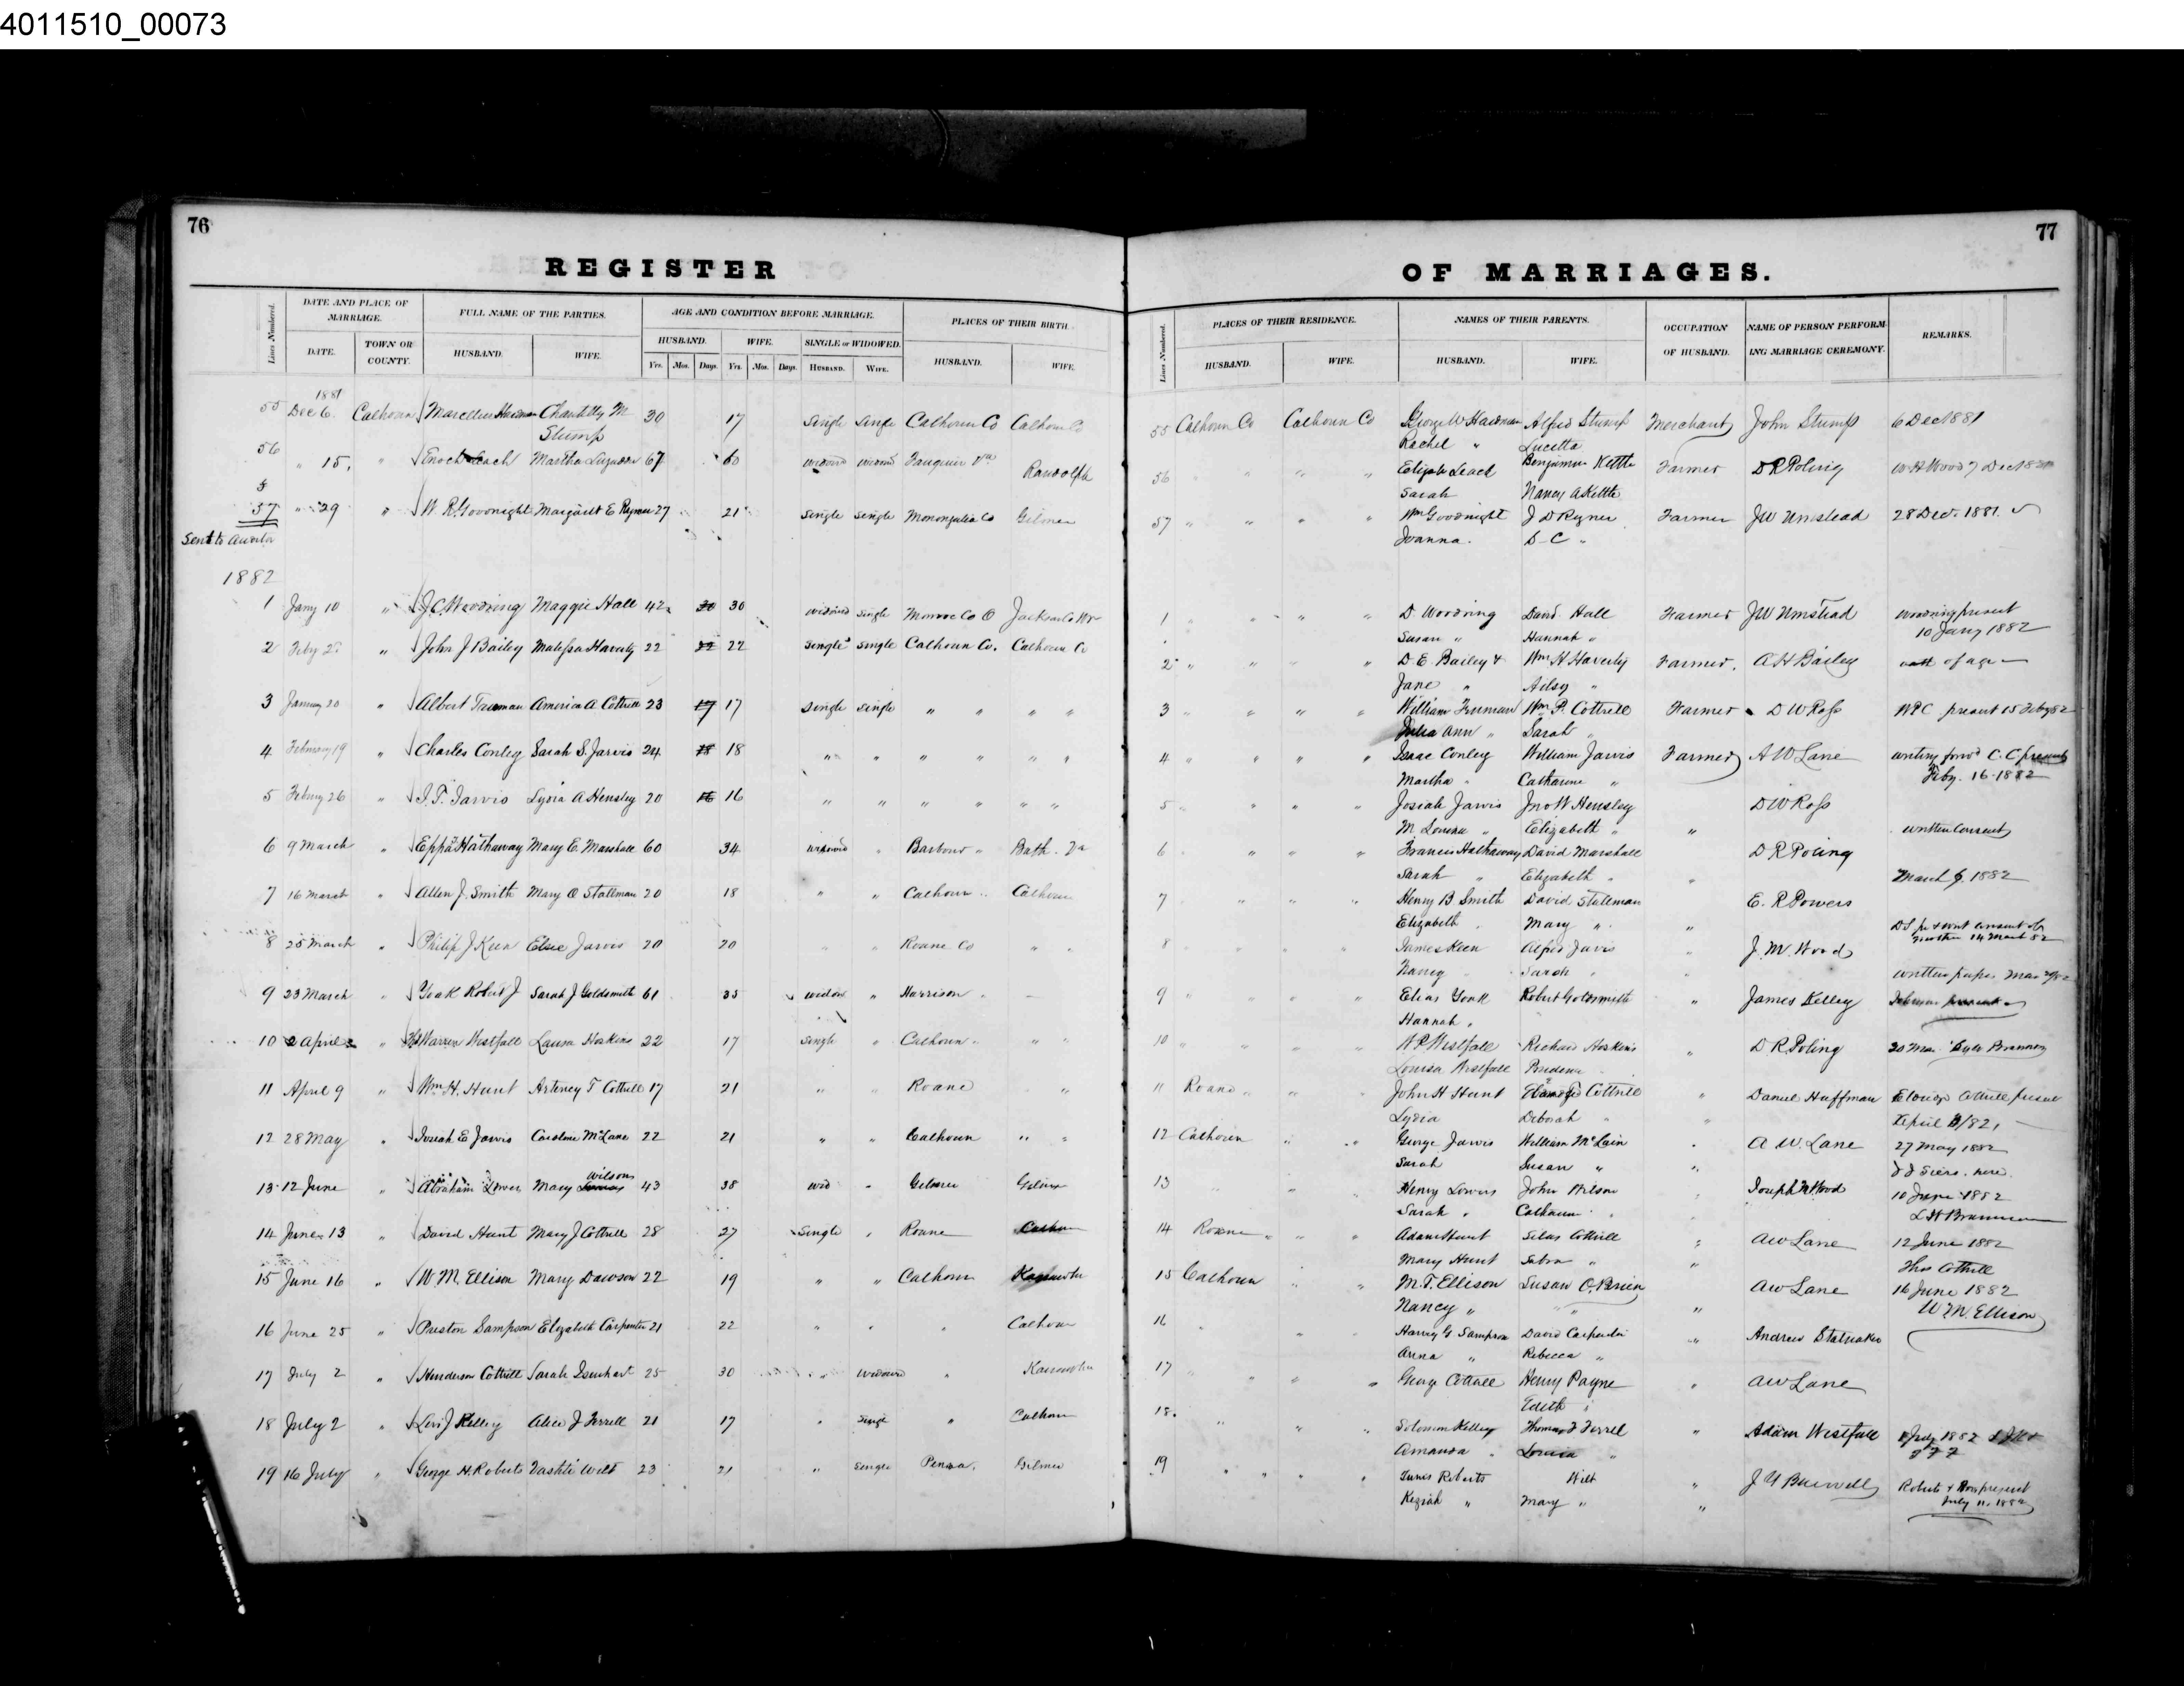 4011510_00073
76
REGISTER
Lines Numbered.
DATE AND PLACE OF MARRIAGE.
FULL NAME OF THE PARTIES.
AGE AND CONDITION BEFORE MARRIAGE.
PLACES OF THEIR BIRTH
DATE.
TOWN OR COUNTY.
HUSBAND.
WIFE.
HUSBAND.
WIFE.
SINGLE or WIDOWED.
HUSBAND.
WIFE.
Yrs. Mos. Days. Yrs. Mos. Days. HUSBAND. WIFE.
1881
55 Dec 6. Calhoun Marcellus Chantilly M 30 17 Single Single Calhoun Co Calhoun Co
Stump
56 " 15. " Enoch Leach Martha 67 60 widowed widowed Fauquier Va Randolph
57 " 29 " W. R. Goodnight Margaret E Rayner 27 21 Single Single Monongalia Co Gilmer
Sent to Auditor
1882
1 Jany 10 " J. C. Woodring Maggie Hall 42 30 widowed Single Monroe Co O Jackson Co
2 Feby " John J Bailey Malissa Haverty 22 22 Single Single Calhoun Co. Calhoun Co
3 January 20 " Albert America A Cottrell 23 17 Single Single " " " "
4 February 19 " Charles Conley Sarah S. Jarvis 24 18 " " " " " "
5 Febury 26 " Jarvis Lydia A Hensley 20 16 " " " " " "
6 9 March " Eppa Hathaway Mary E. Marshall 60 34 widowed " Barbour " Bath. Va
7 16 March " Allen J. Smith Mary Stallman 20 18 " " Calhoun Calhoun
8 25 March " Philip J Keen Elsie Jarvis 20 20 " " Roane Co " "
9 23 March " Robert J Sarah J Goldsmith 61 35 widow " Harrison
10 2 April " Warren Westfall Laura Hoskins 22 17 Single " Calhoun " "
11 April 9 " Wm. H. Hunt Arteney T Cottrell 17 21 " " Roane "
12 28 May " Josiah E Jarvis Caroline McLane 22 21 " " Calhoun " "
13 12 June " Abraham Lowers Mary Wilson 43 38 wid " Gilmer Gilmer
14 June 13 " David Hunt Mary J Cottrell 28 27 Single " Roane
15 June 16 " W. M. Ellison Mary Dawson 22 19 " " Calhoun Kanawha
16 June 25 " Preston Sampson Elizabeth Carpenter 21 22 " " " Calhoun
17 July 2 " Henderson Cottrell Sarah Isenhart 25 30 " widowed " Kanawha
18 July 2 " Levi J Kelley Alice J Ferrell 21 17 " Single " Calhoun
19 16 July " George H. Roberts Vashti Wilt 23 21 " Single Penna. Gilmer
77
OF MARRIAGES.
Lines Numbered.
PLACES OF THEIR RESIDENCE.
NAMES OF THEIR PARENTS.
OCCUPATION OF HUSBAND.
NAME OF PERSON PERFORMING MARRIAGE CEREMONY.
REMARKS.
HUSBAND.
WIFE.
HUSBAND.
WIFE.
55 Calhoun Co Calhoun Co George W Alfred Stump Merchant John Stump 6 Dec 1881
Rachel " Lucetta
56 " " " Leach Benjamin Kettle Farmer D R Poling
Sarah Nancy A Kettle
57 " " " " Wm Goodnight J D Rayner Farmer J W Umstead 28 Dec. 1881.
Joanna. D C "
1 " " " " D Woodring David Hall Farmer J W Umstead Woodring present
Susan " Hannah " 10 Jany 1882
2 " " " " D. E. Bailey & Wm H Haverty Farmer. A H Bailey of age
Jane " Ailsy "
3 " " " " William Wm. P. Cottrell Farmer D W Ross W P C present 15
Julia Ann " Sarah "
4 " " " " Isaac Conley William Jarvis Farmer A W Lane C. C
Martha " Catharine " Feby. 16-1882
5 " " " Josiah Jarvis Jno W Hensley D W Ross
M. " Elizabeth " " written consent
6 " " " Francis Hathaway David Marshall D R Poling
Sarah " Elizabeth " " March 1882
7 " " " Henry B Smith David Stallman E. R Powers
Elizabeth " Mary " "
8 " " " James Keen Alfred Jarvis J. M. Wood
Nancy " Sarah " "
9 " " " " Elias Robert Goldsmith " James Kelley
Hannah "
10 " " " " Westfall Richard Hoskins " D R Poling 20 Mar
Louisa Westfall
11 Roane " " John H Hunt Cottrell " Daniel Huffman Cottrell present
Lydia Deborah " April
12 Calhoun " " George Jarvis William McLain " A W. Lane 27 May 1882
Sarah Susan " "
13 " Henry Lowers John Wilson " Joseph M Wood 10 June 1882
Sarah "
14 Roane " " " Adam Hunt Silas Cottrell " A W Lane 12 June 1882
Mary Hunt " " Cottrell
15 Calhoun " " M. T. Ellison Susan O. Brien A W Lane 16 June 1882
Nancy " " " W. M. Ellison
16 " " Harvey G Sampson David Carpenter " Andrew Stalnaker
Anna " Rebecca "
17 " " " " George Cottrell Henry Payne " A W Lane
Edith "
18. " " " Solomon Kelley Thomas Ferrel " Adam Westfall July 1882
Amanda " Louisa "
19 " " " " Roberts Wilt " J. Y Burwell Roberts present
Keziah " Mary " " July 11, 1882